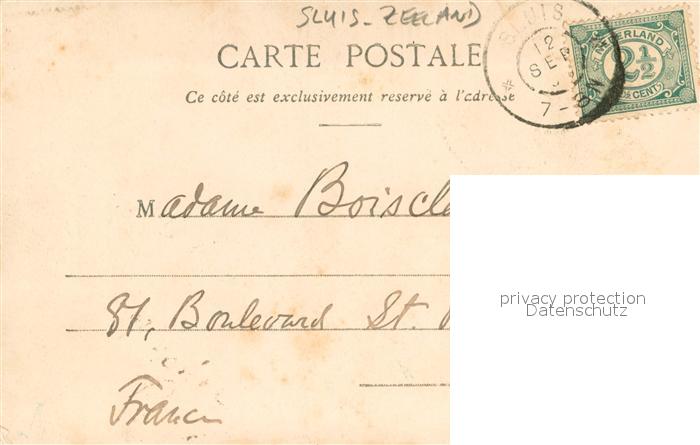 SLUIS-ZEELAND
CARTE POSTALE
Ce côté est exclusivement reservé à l'adresse
SLUIS
12
SEP
7-8N
NEDERLAND
2½
CENT
Madame Boiscl
81, Boulevard St.
France
privacy protection
Datenschutz